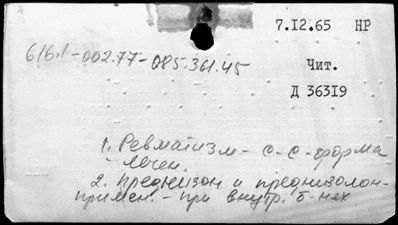 7.I2.65 НР
616.1-002.77-085.361.45
Чит.
Д 363I9
1. Ревматизм - с-с-форма
лечен.
2. Преднизон и преднизолон-
примен. - при внутр. б-нех.